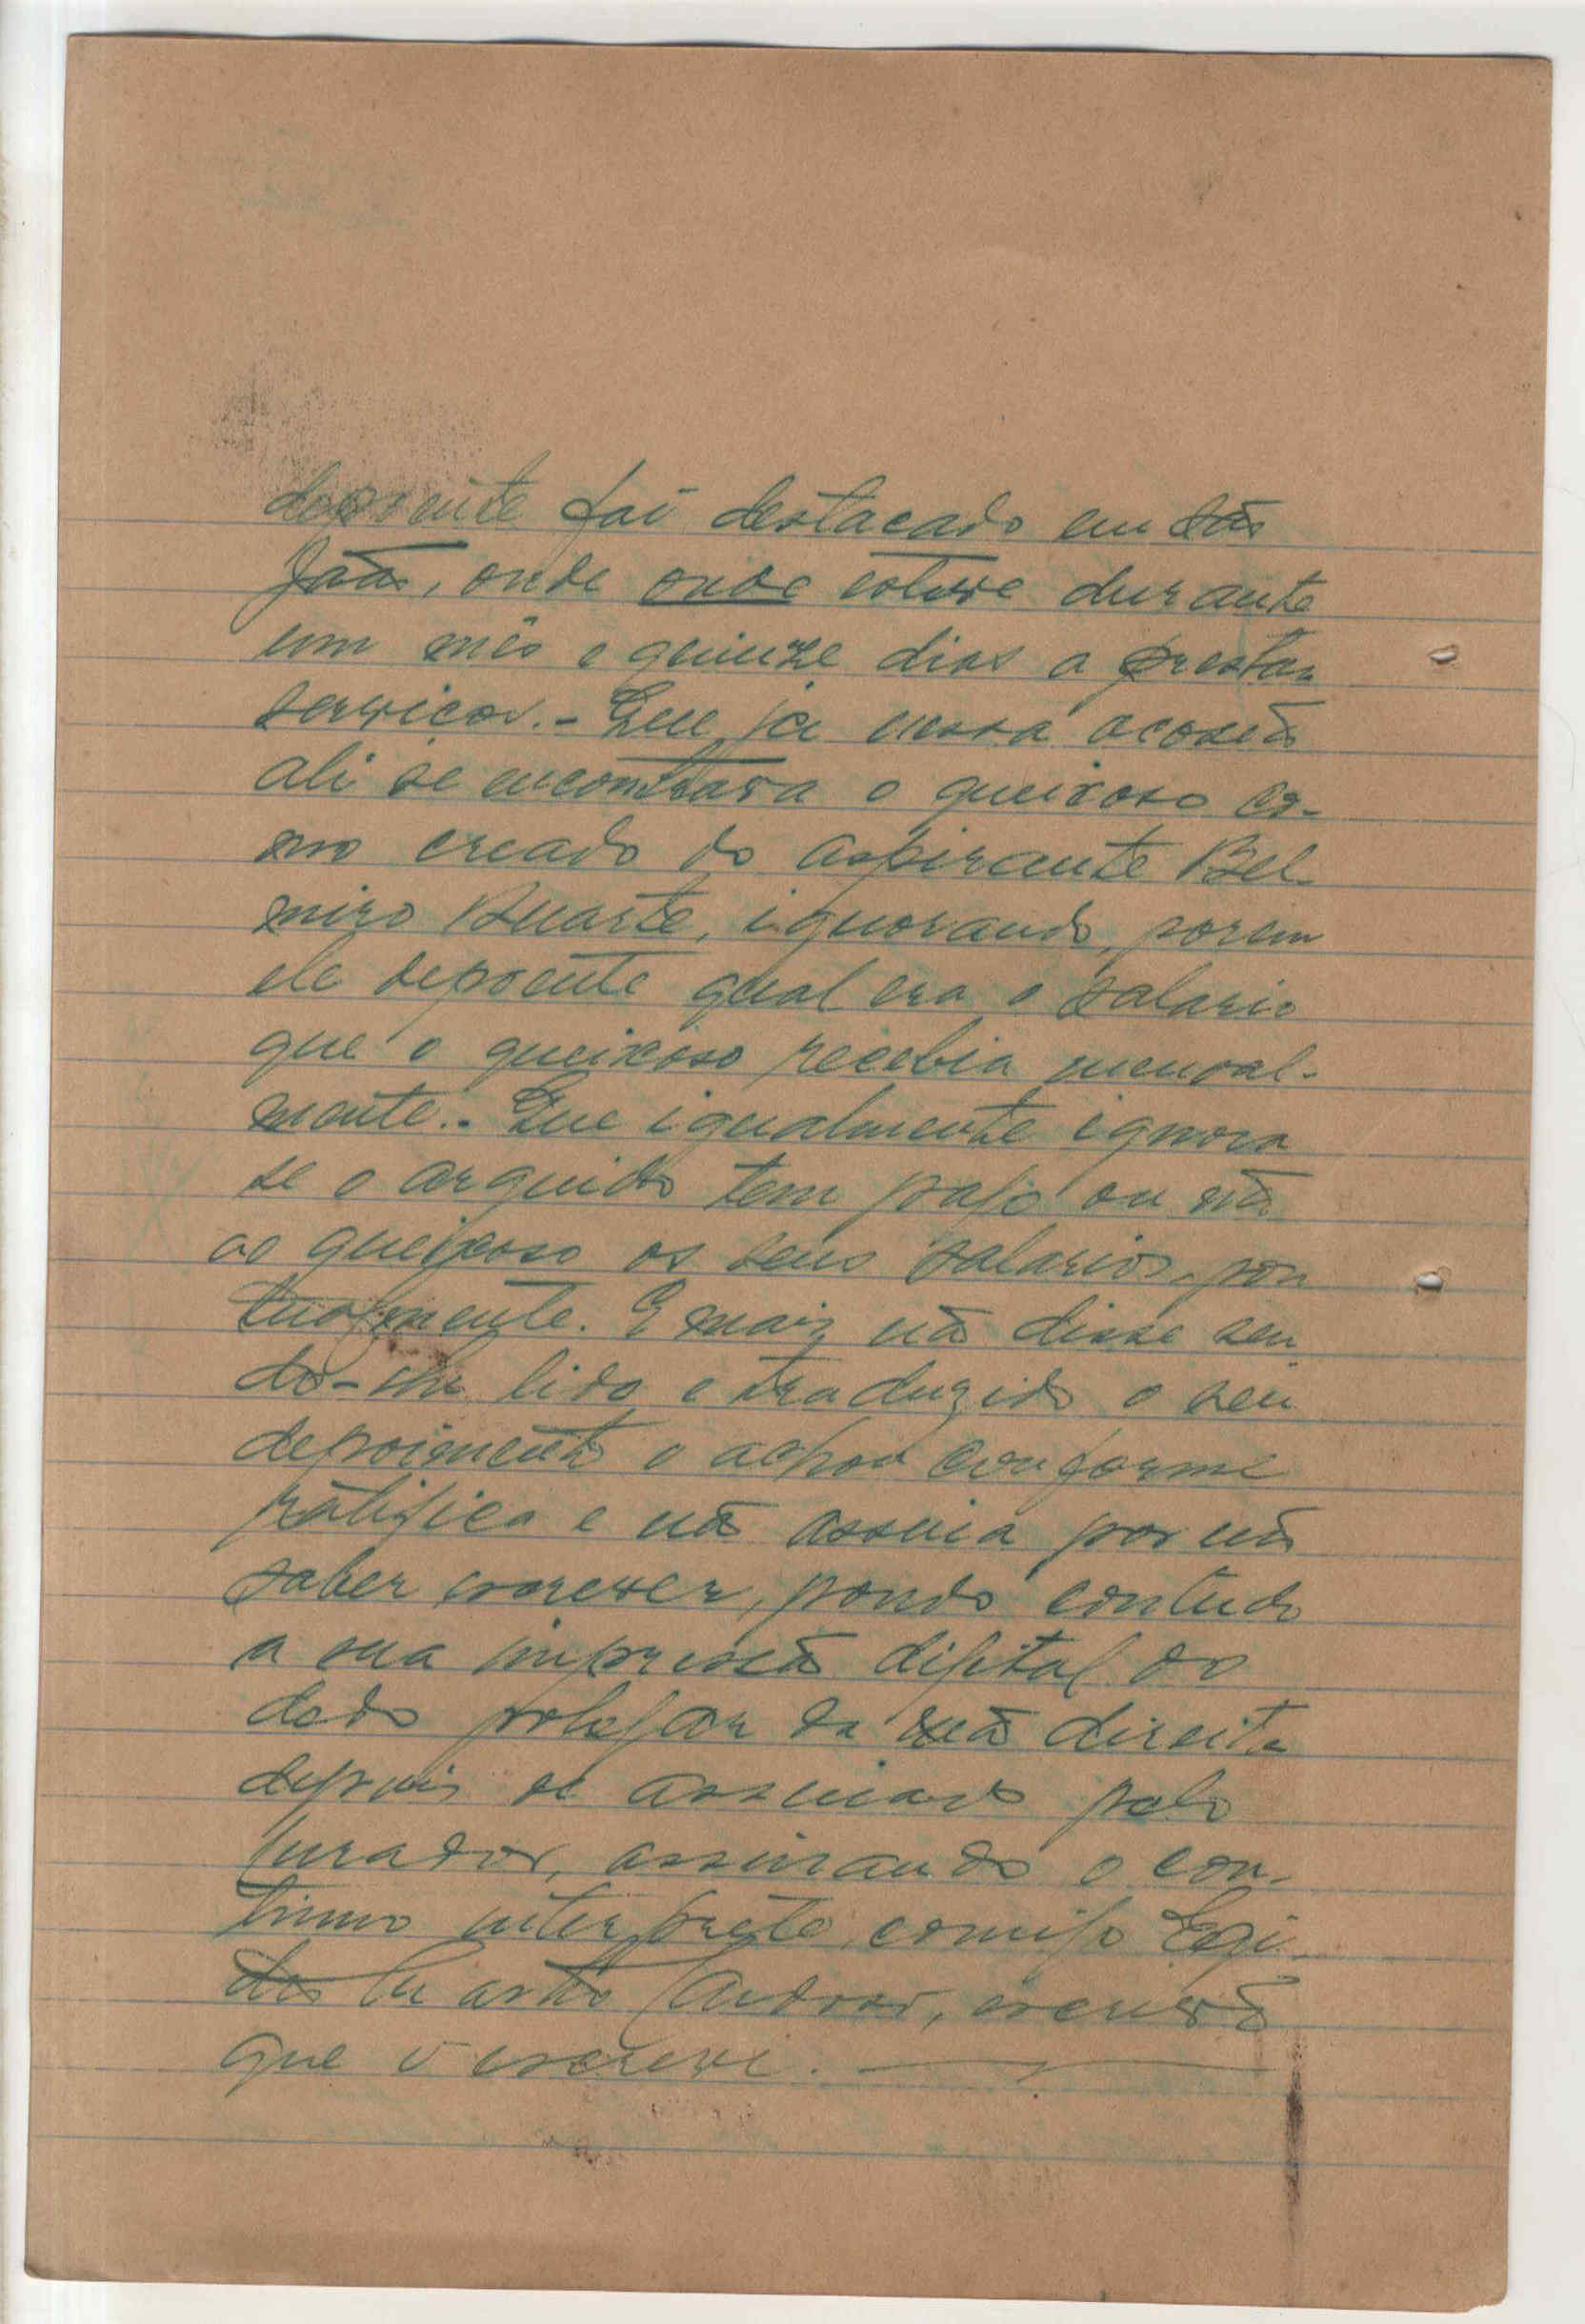 depoente foi destacado em São
João, onde onde esteve durante
um mês e quinze dias a prestar
serviços.- Que já nessa ocasião
ali se encontrava o queixoso co-
mo creado do aspirante Bel-
miro Duarte, ignorando, porem
ele depoente qual era o salario
que o queixoso recebia mensal-
mente.- Que igualmente ignora
se o arguido tem pago ou não
ao queixoso os seus salarios, pon
tualmente. E mais não disse sen
do-lhe lido e traduzido o seu
depoimento o achou conforme
ratifica e não assina por não
saber escrever, pondo contudo
a sua impressão digital do
dedo polegar da mão direita
depois de assinado pelo
Curador, assinando o con-
tinuo interprete comigo
escrivão
que o escrevi.